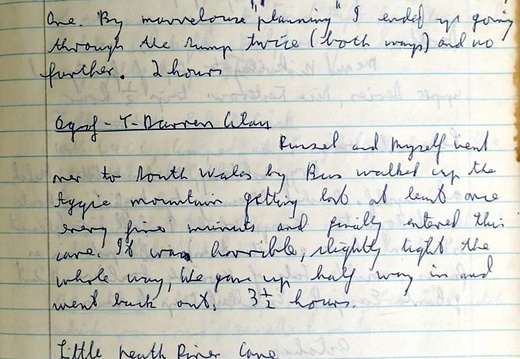 One. By marvelouse "planning" I ended up going
through the sump twice (both ways) and no
further. 2 hours
Ogof-Y-Darren Cilau
Russel and Myself went
over to South Wales by Bus walked up the
mountain getting lost at least once
every five minuts and finally entered this
cave. It was horrible, slightly tight the
whole way, We gave up half way in and
went back out. 3½ hours.
Little Neath River Cave